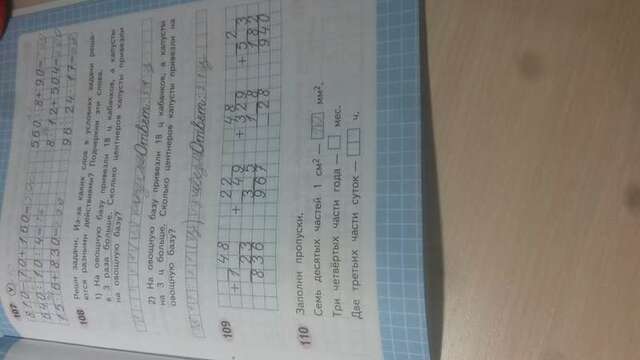 107
810-70+160=
560 : 8+90=
640 : 10 : 4=
8 · 12+504=
15 · 6+830=
96 : 24 · 17=
108 Реши задачи. Из-за каких слов в условиях задачи реша-
ются разными действиями? Подчеркни эти слова.
1) На овощную базу привезли 18 ц кабачков, а капусты
в 3 раза больше. Сколько центнеров капусты привезли
на овощную базу?
Ответ:
2) На овощную базу привезли 18 ц кабачков, а капусты
на 3 ц больше. Сколько центнеров капусты привезли на
овощную базу?
Ответ:
109
48 22 48 2
+ 1 + 49 + 329 + 5 3
23 3 5 1 8 182
836 967 28 940
110 Заполни пропуски.
Семь десятых частей 1 см² — мм².
Три четвёртых части года — мес.
Две третьих части суток — ч.